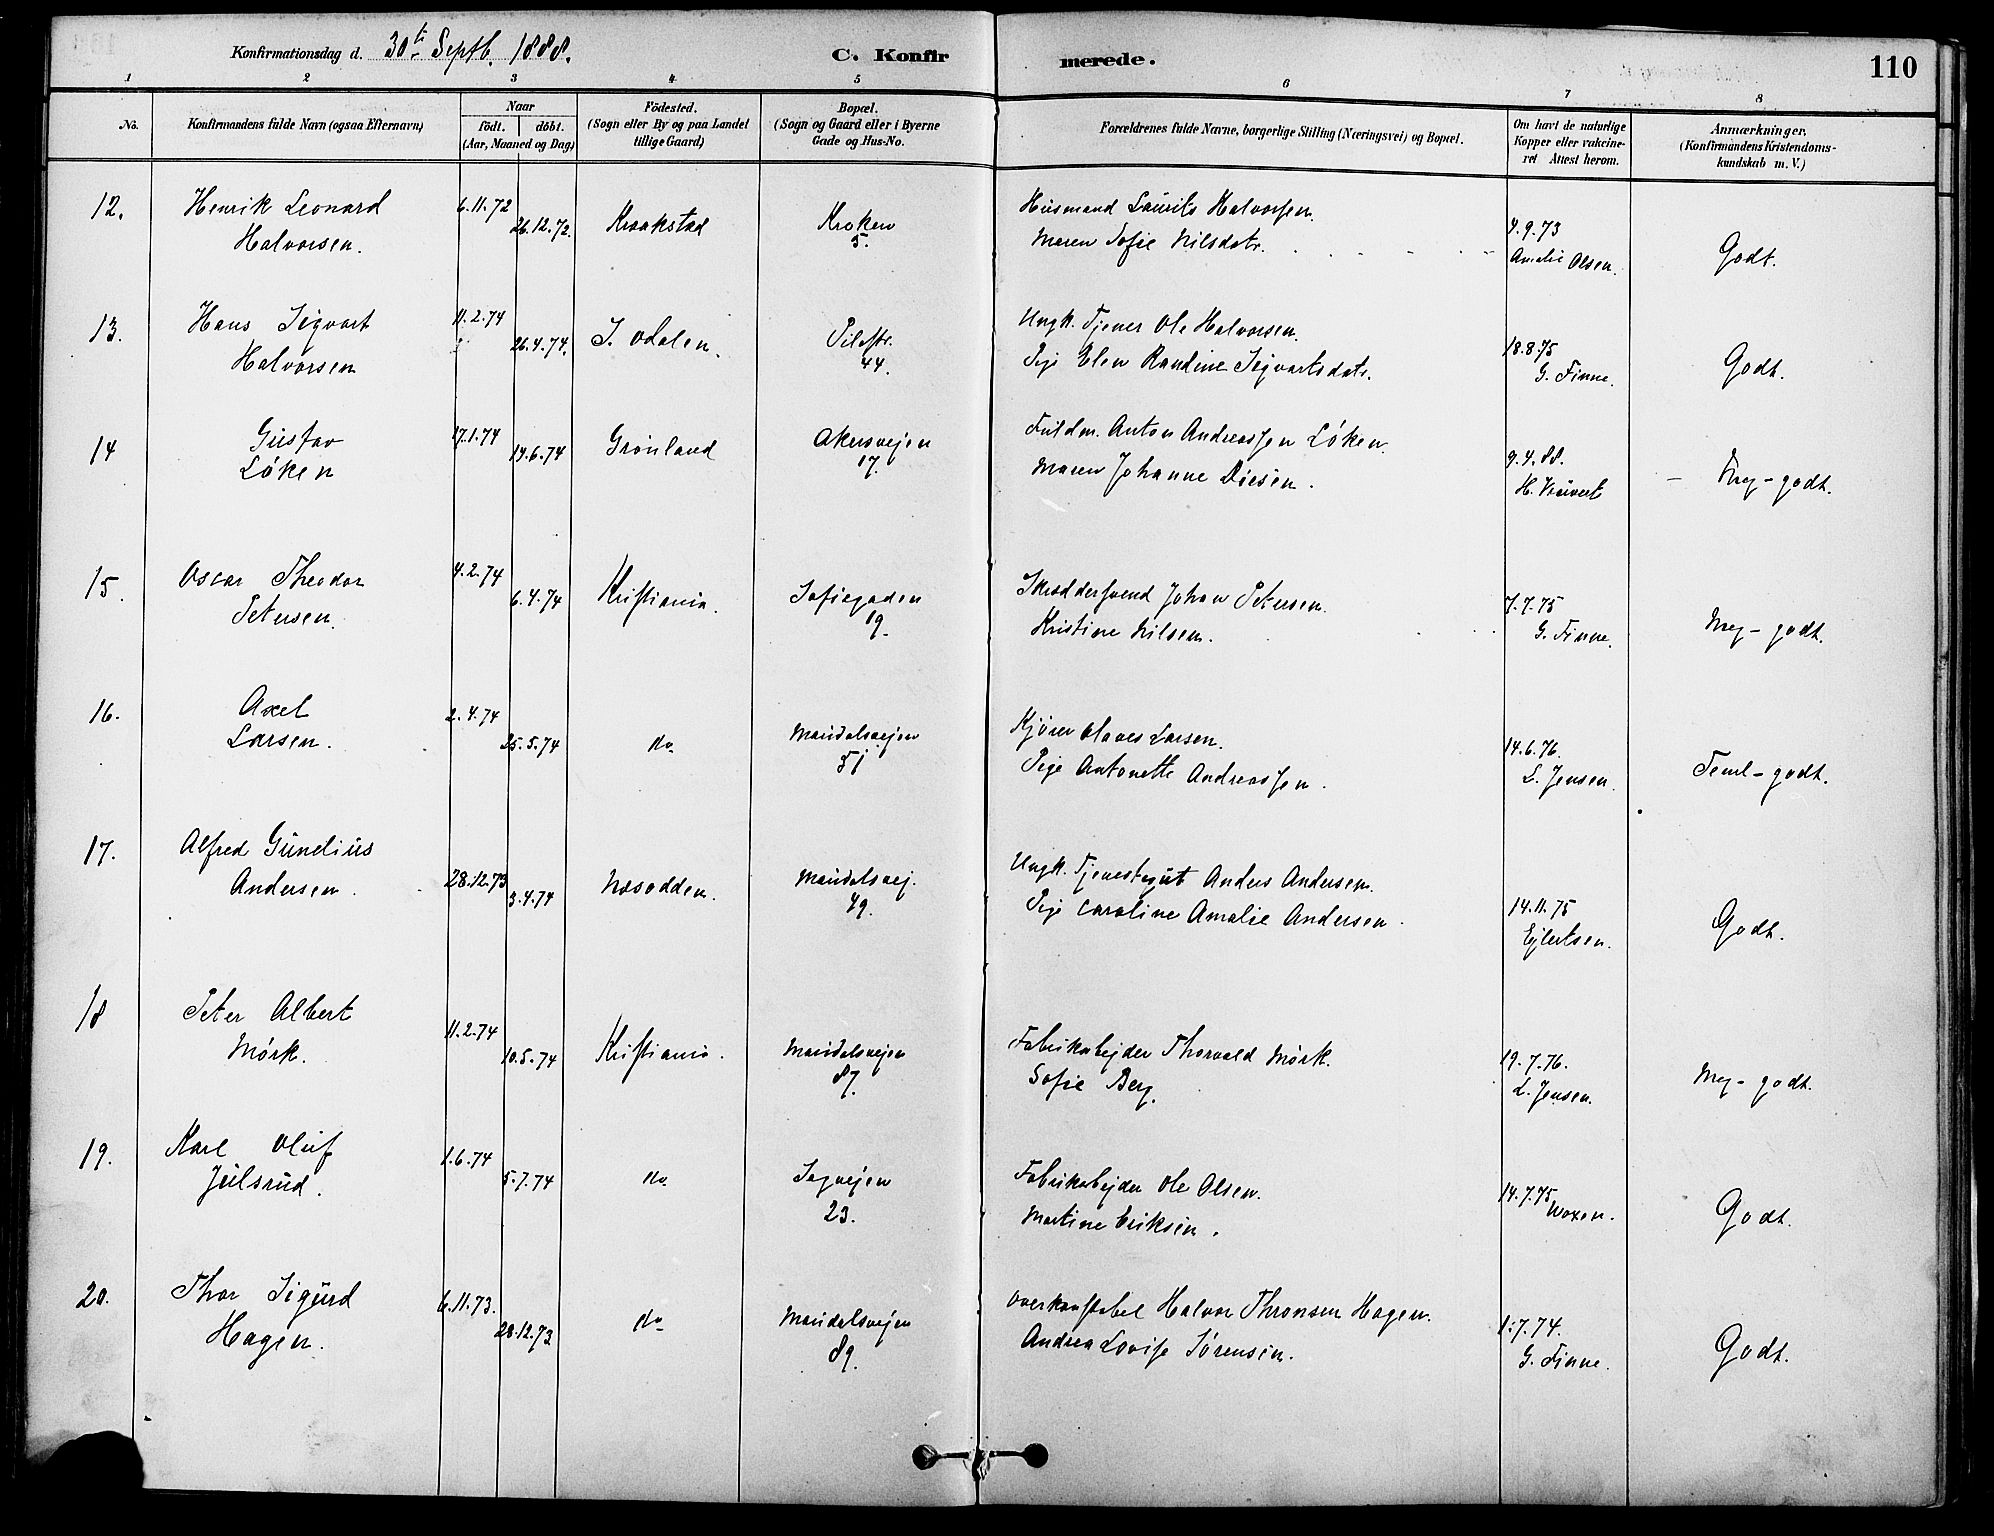 Konfirmationsdag d. 30te Septb. 1888.
C. Konfirmerede.
110
1 2 3 4 5 6 7 8
No.
Konfirmandens fulde Navn (ogsaa Efternavn)
Naar
födt. döbt.
(Aar, Maaned og Dag)
Födested.
(Sogn eller By og paa Landet
tillige Gaard)
Bopæl.
(Sogn og Gaard eller i Byerne
Gade og Hus-No.
Forældrenes fulde Navne, borgerlige Stilling (Næringsvei) og Bopæl.
Om havt de naturlige
Kopper eller vakcine-
ret Attest herom.
Anmærkninger.
(Konfirmandens Kristendoms-
kundskab m. V.)
12.
Henrik Leonard
Halvorsen.
6.11.72
26.12.72.
Kraakstad
Kroken
5.
Husmand Laurits Halvorsen.
Maren Sofie Nilsdatr.
4.9.73
Amalie Olsen.
Godt.
13.
Hans Sigvart
Halvorsen
11.2.74
26.4.74.
S. Odalen.
Pilestr.
44.
Ungk. Tjener Ole Halvorsen.
Pige Elen Randine Sigvartsdatr.
18.8.75
G. Finne.
Godt.
14
Gustav
Løken
17.1.74
14.6.74
Grønland
Akersvejen
17.
Fuldm. Anton Andreassen Løken.
Maren Johanne Diesen.
9.4.88.
H.
Meg-godt.
15.
Oscar Theodor
Petersen.
4.2.74
6.4.74
Kristiania.
Sofiegaden
19.
Skræddersvend Johan Petersen.
Kristine Nilsen.
7.7.75
G. Finne.
Meg-godt.
16.
Axel
Larsen.
2.4.74
25.5.74
do.
Maridalsvejen
51
Kjører Olaves Larsen.
Pige Antonette Andreassen.
14.6.76.
L. Jensen.
Teml-godt.
17.
Alfred Gunelius
Andersen.
28.12.73
3.4.74
Næsodden.
Maridalsvej.
49.
Ungk. Tjenestegut Anders Andersen.
Pige Caroline Amalie Andersen.
14.11.75
Ejlertsen.
Godt.
18
Peter Albert
Mørk.
11.2.74
10.5.74
Kristiania.
Maridalsvejen
87.
Fabrikarbejder Thorvald Mørk.
Sofie Berg.
19.7.76.
L. Jensen.
Meg-godt.
19.
Karl Oluf
Juelsrud.
1.6.74
5.7.74
do.
Sagvejen
23.
Fabrikarbejder Ole Olsen.
Martine Eriksen.
14.7.75
Woxen.
Godt.
20.
Thor Sigurd
Hagen.
6.11.73.
28.12.73
do
Maridalsvejen
89.
Overkonstabel Halvor Thronsen Hagen.
Andrea Lovise Sørensen.
1.7.74.
G. Finne.
Godt.